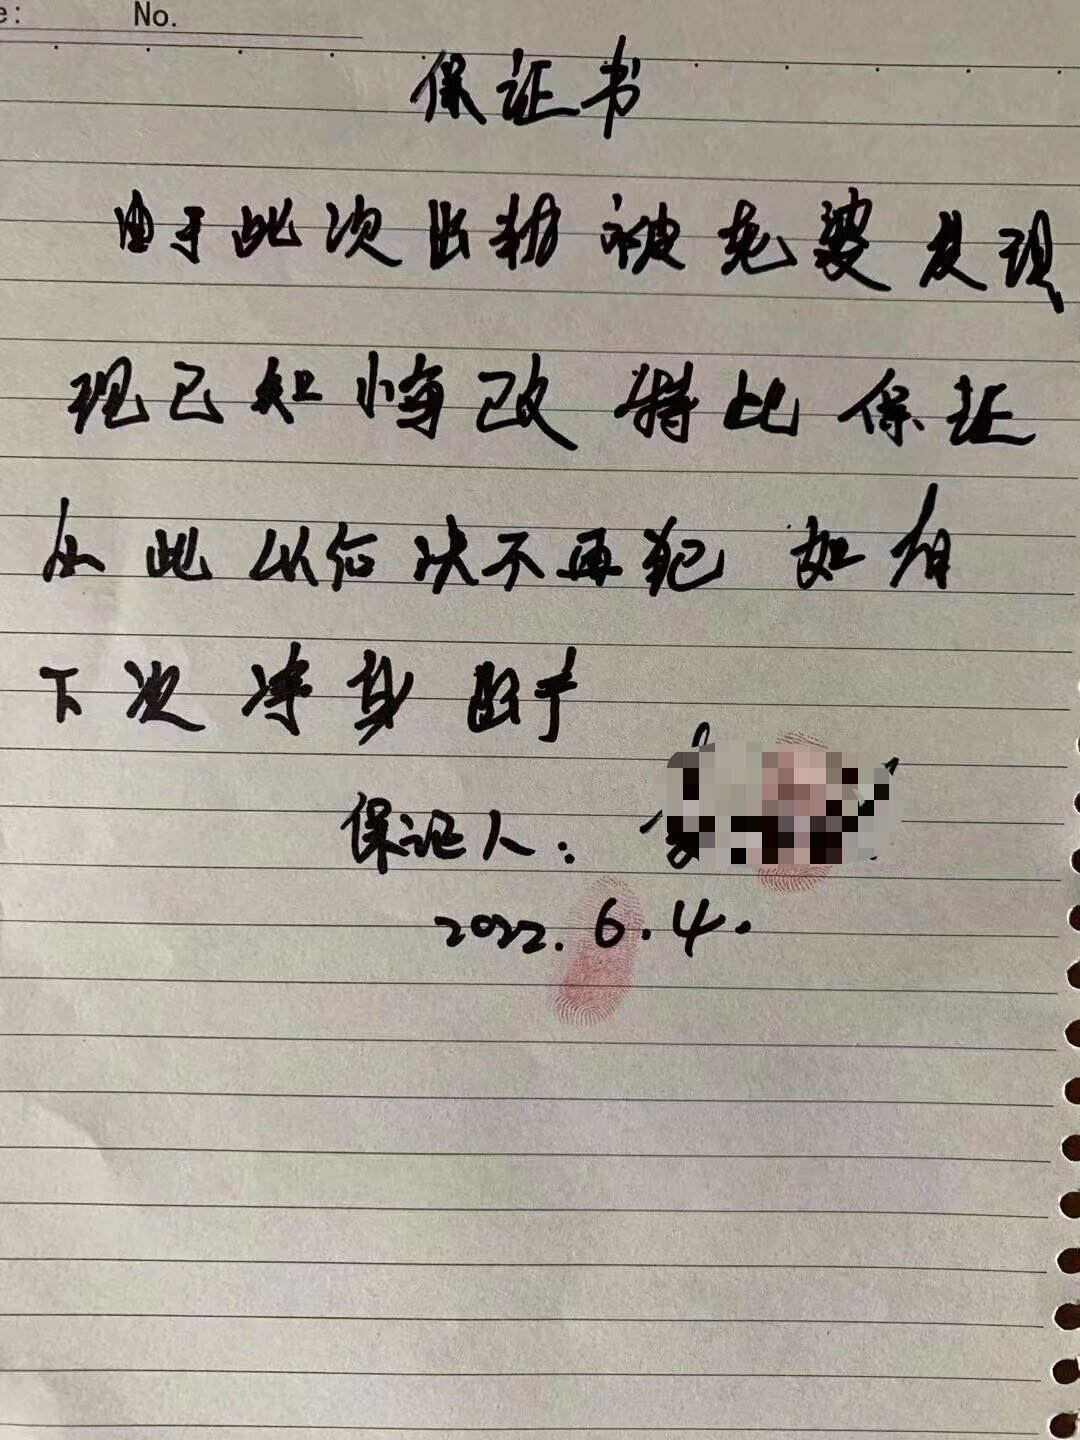 e: No.
保证书
由于此次出轨被老婆发现
现已知悔改 特此保证
从此以后决不再犯 如有
下次 净身出户
保证人：
2022.6.4.